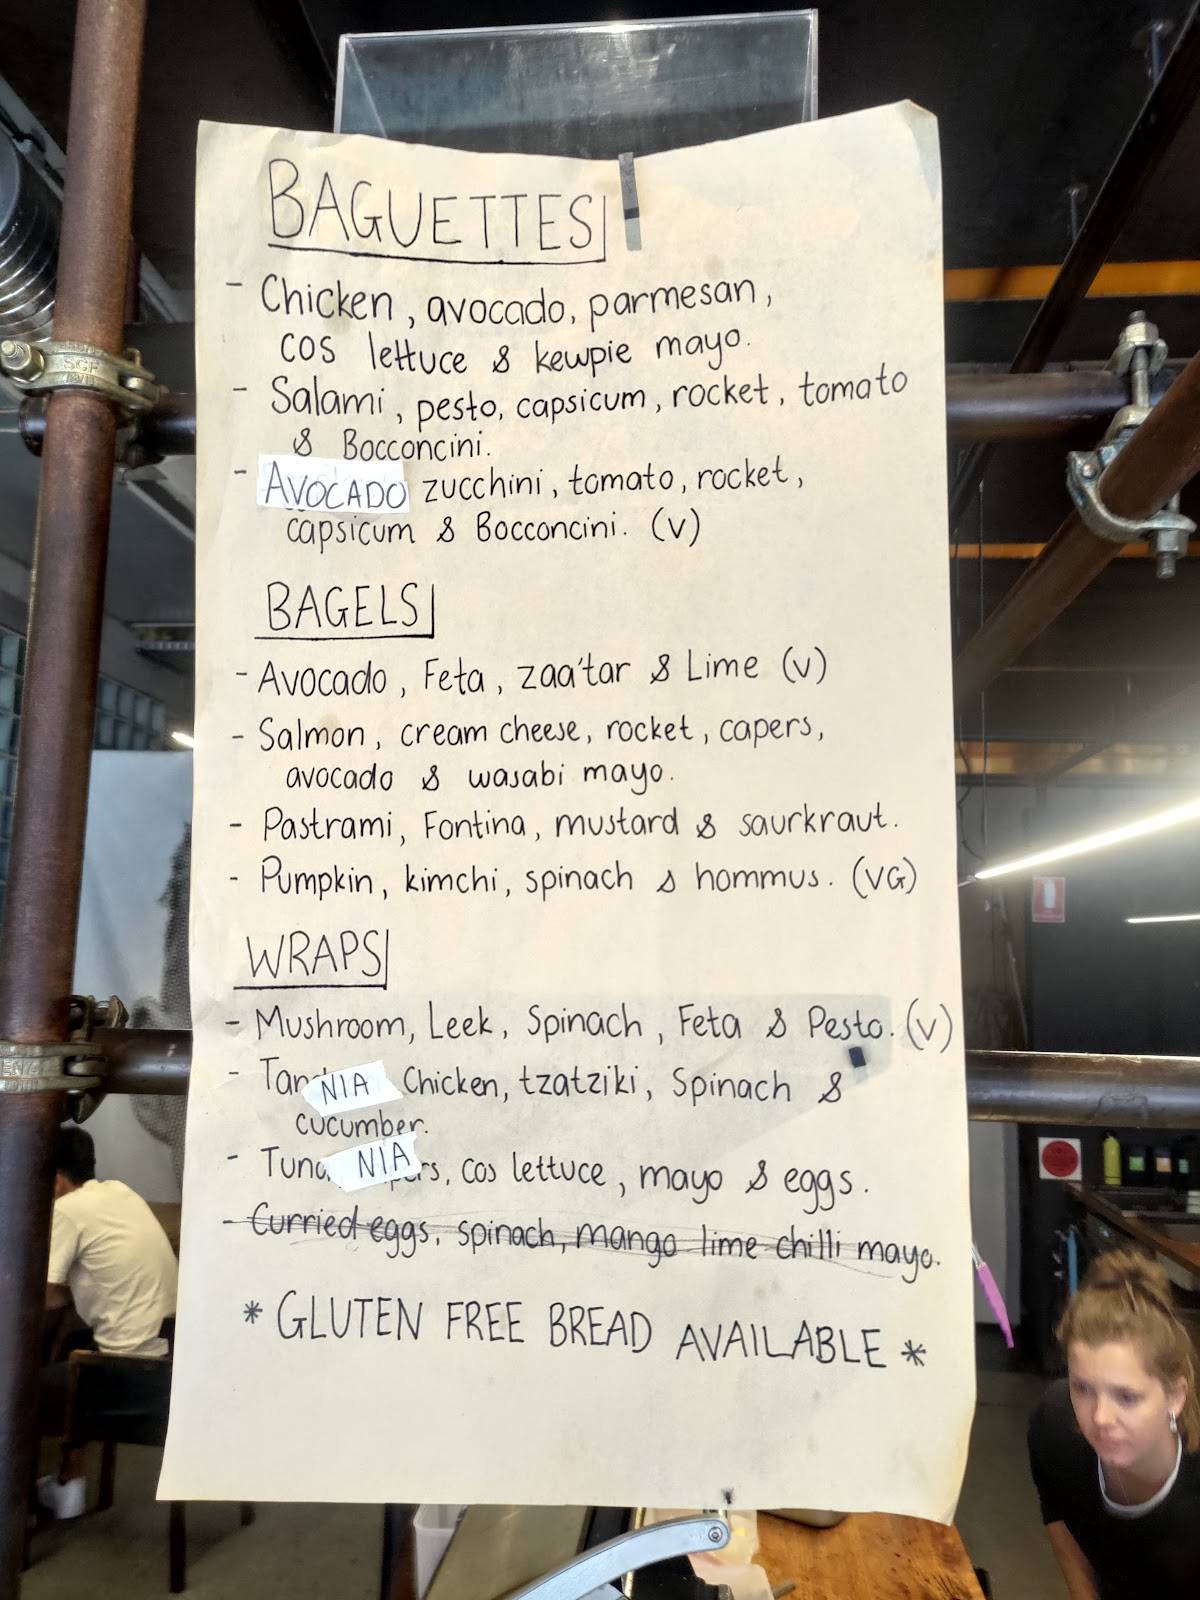 BAGUETTES
- Chicken, avocado, parmesan,
cos lettuce & kewpie mayo.
- Salami, pesto, capsicum, rocket, tomato
& Bocconcini.
- AVOCADO zucchini, tomato, rocket,
capsicum & Bocconcini. (V)
BAGELS
- Avocado, Feta, zaa'tar & Lime (V)
- Salmon, cream cheese, rocket, capers,
avocado & wasabi mayo.
- Pastrami, Fontina, mustard & saurkraut.
- Pumpkin, kimchi, spinach & hommus. (VG)
WRAPS
- Mushroom, Leek, Spinach, Feta & Pesto. (V)
- Tan NIA Chicken, tzatziki, Spinach &
cucumber.
- Tuna NIA rs, cos lettuce, mayo & eggs.
- Curried eggs, spinach, mango lime chilli mayo.
* GLUTEN FREE BREAD AVAILABLE *